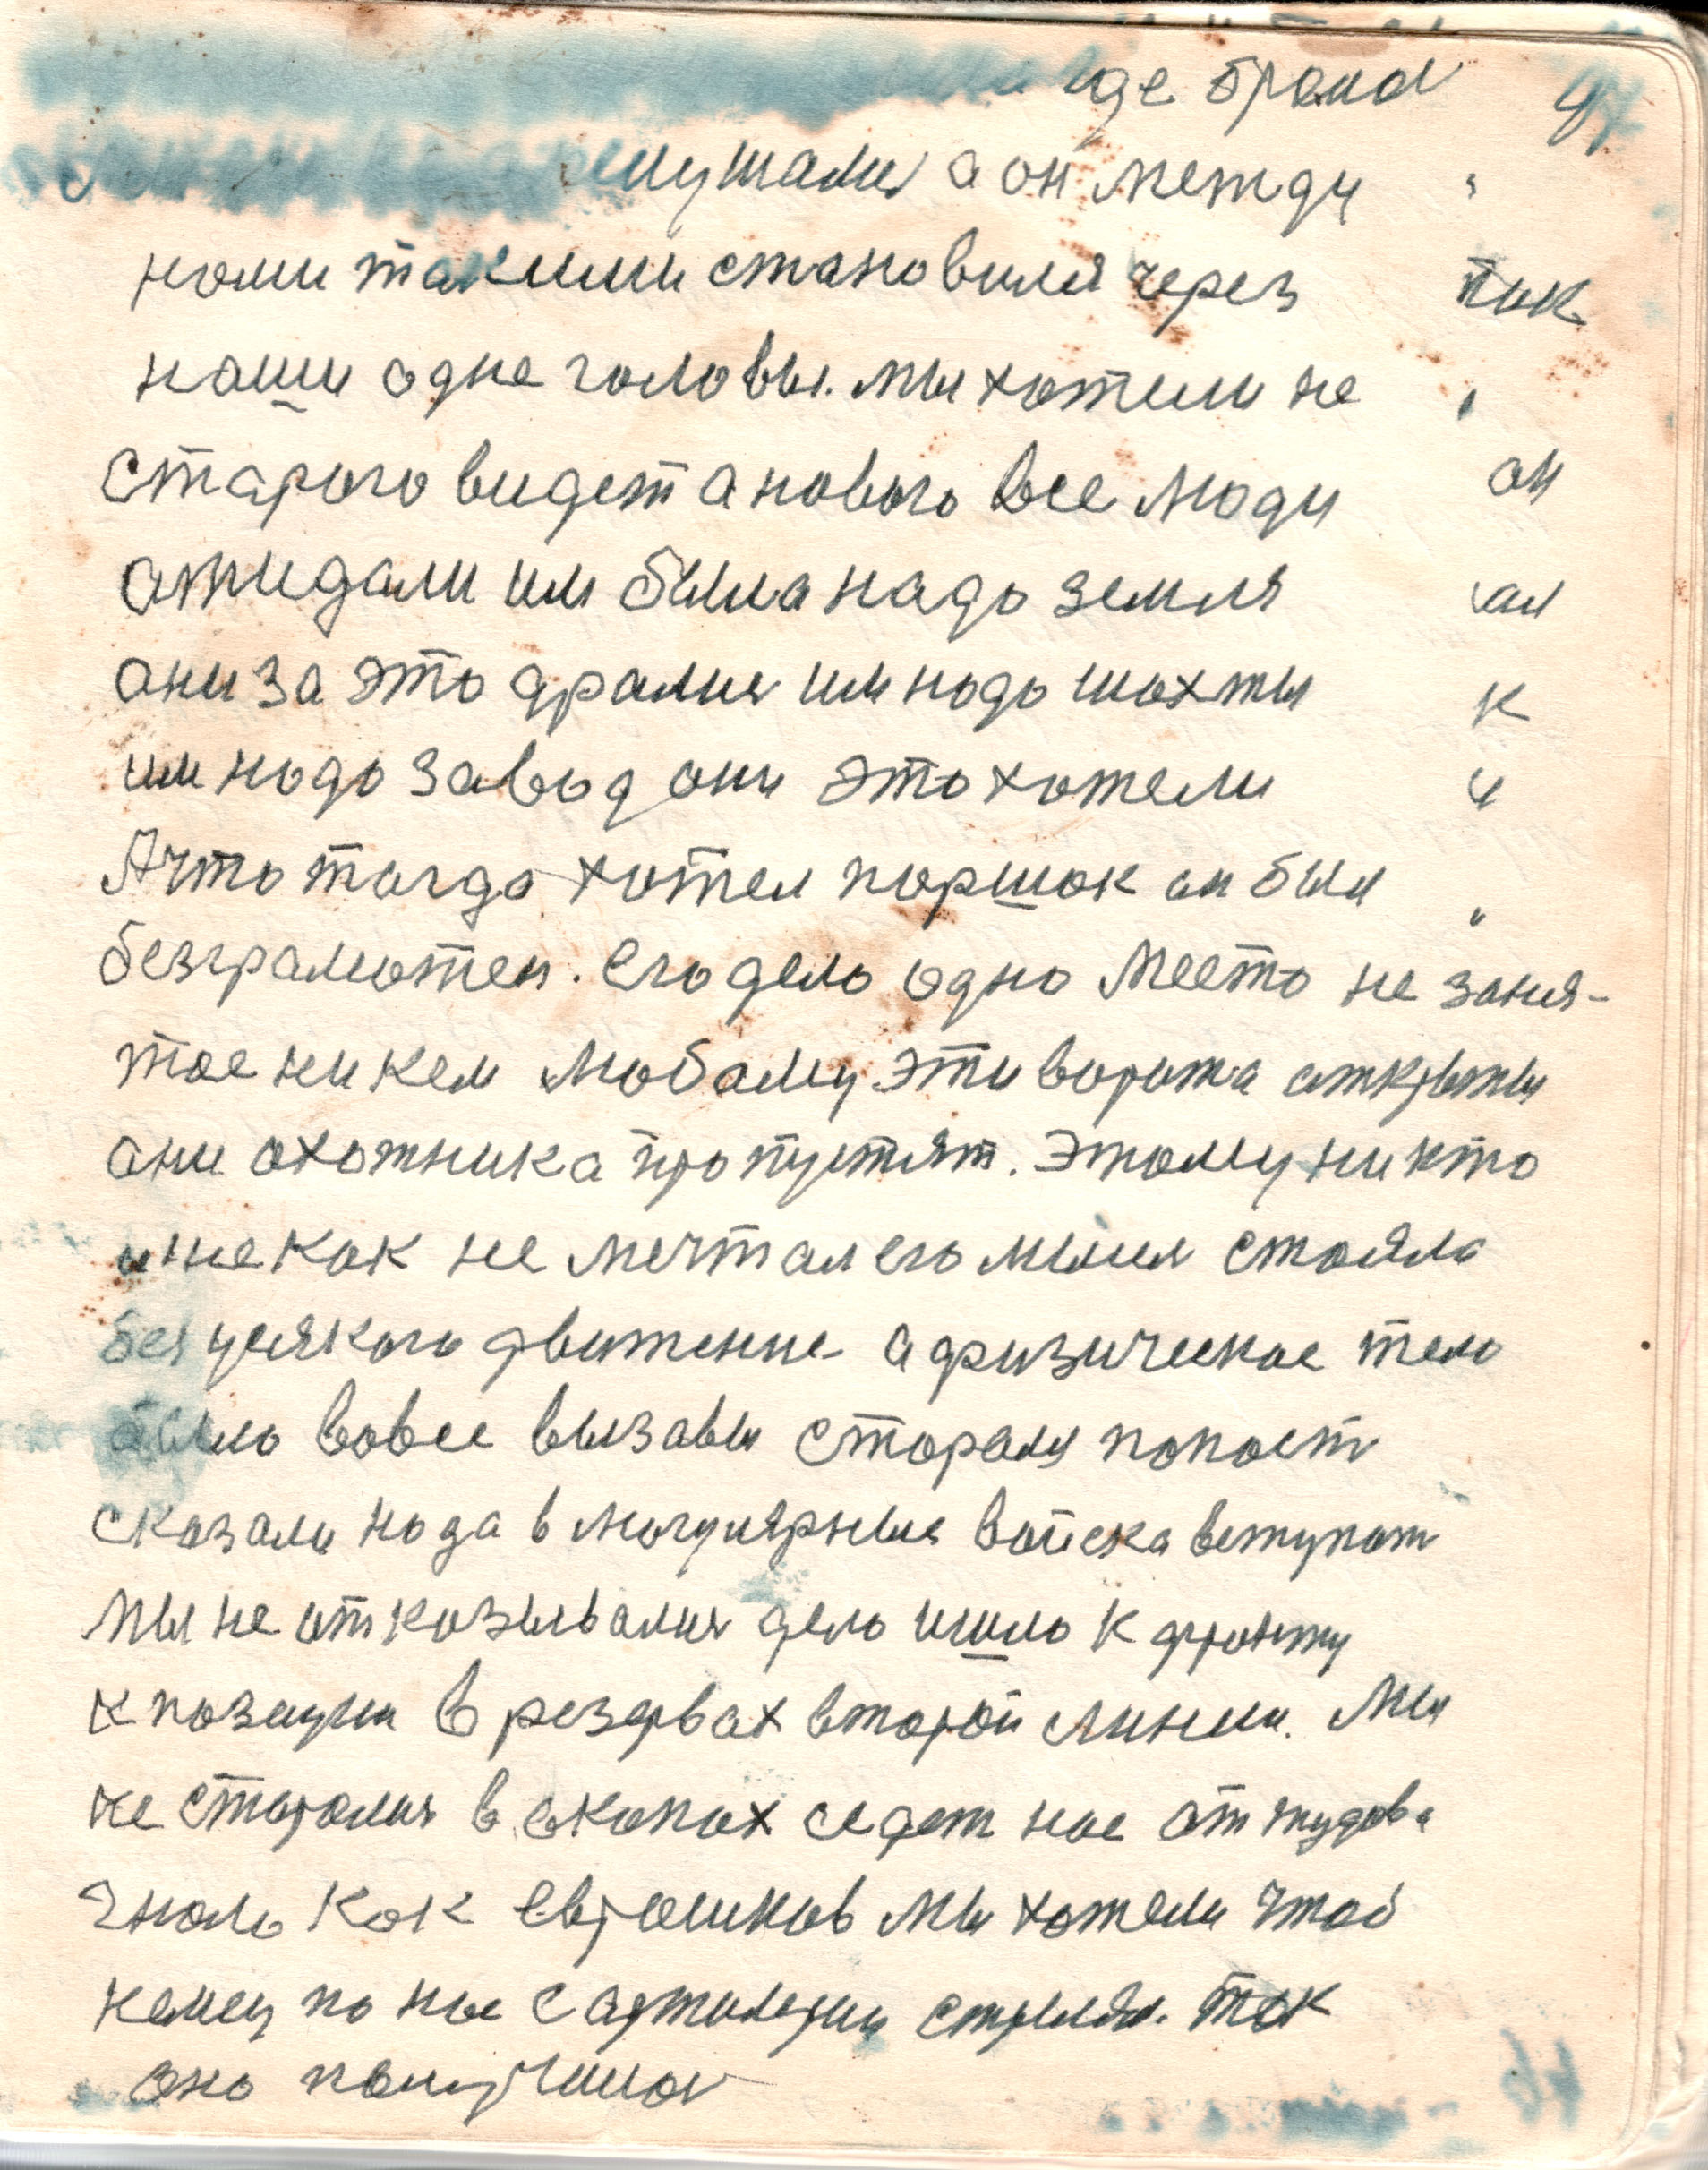 где брала 47
слушали а он между
нами такими становился через так
наши одне головы. мы хотели не
старого видет а нового все люди он
ажидали им была надо земля ал
они за это дрались им надо шахты к
им надо завод они это хотели и
А что тагда хотел поршок он был
безграмотен. его дело одно место не заня-
тое никем любому эти ворота аткрыты
ани охотника пропустят. Этому никто
и не как не мечтал его мысля стояла
без усякого движение а физическое тело
было вовсе вызавы старался попаст
сказали нада в могулярные войска вступат
мы не отказывались дело ишло к фронту
к позиции в резервах второй линии. Мы
не старались в окопах седет нас оттудова
гнало как Еврашков мы хотели чтоб
немец по нас с артилерии стрелял. так
оно получилос